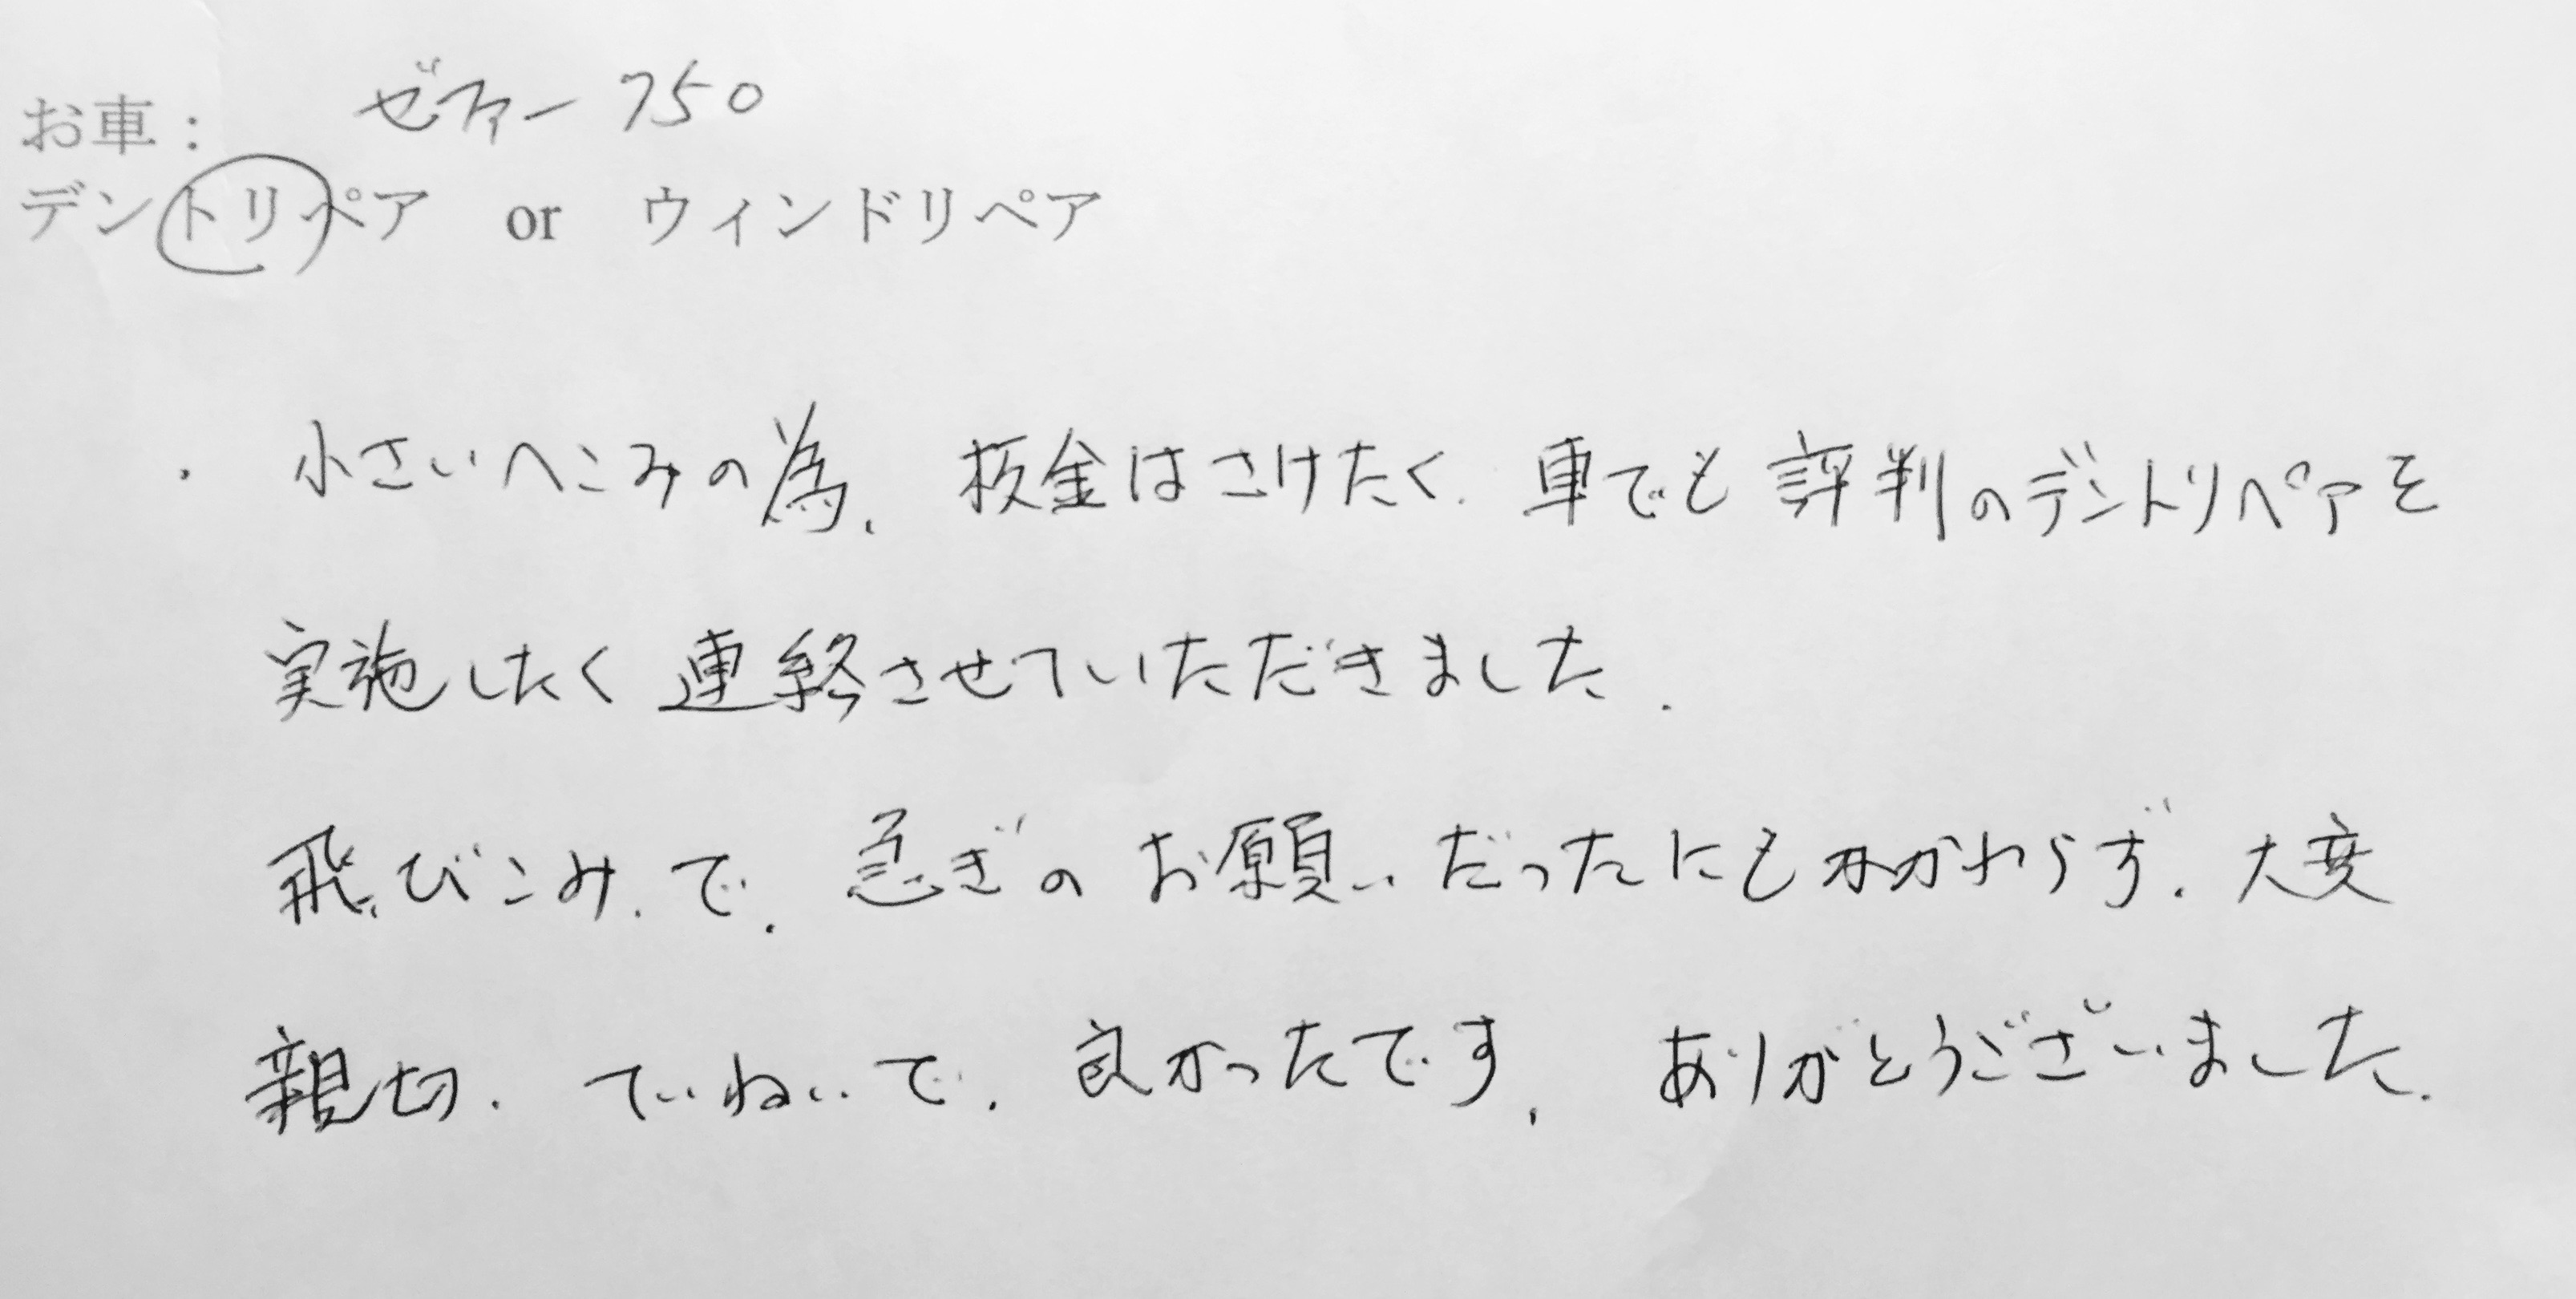 お車： ゼファー 750
デントリペア or ウィンドリペア
・小さいへこみの為、板金はさけたく、車でも評判のデントリペアを
実施したく連絡させていただきました。
飛びこみで、急ぎのお願いだったにもかかわらず、大変
親切、ていねいで、良かったです。ありがとうございました。